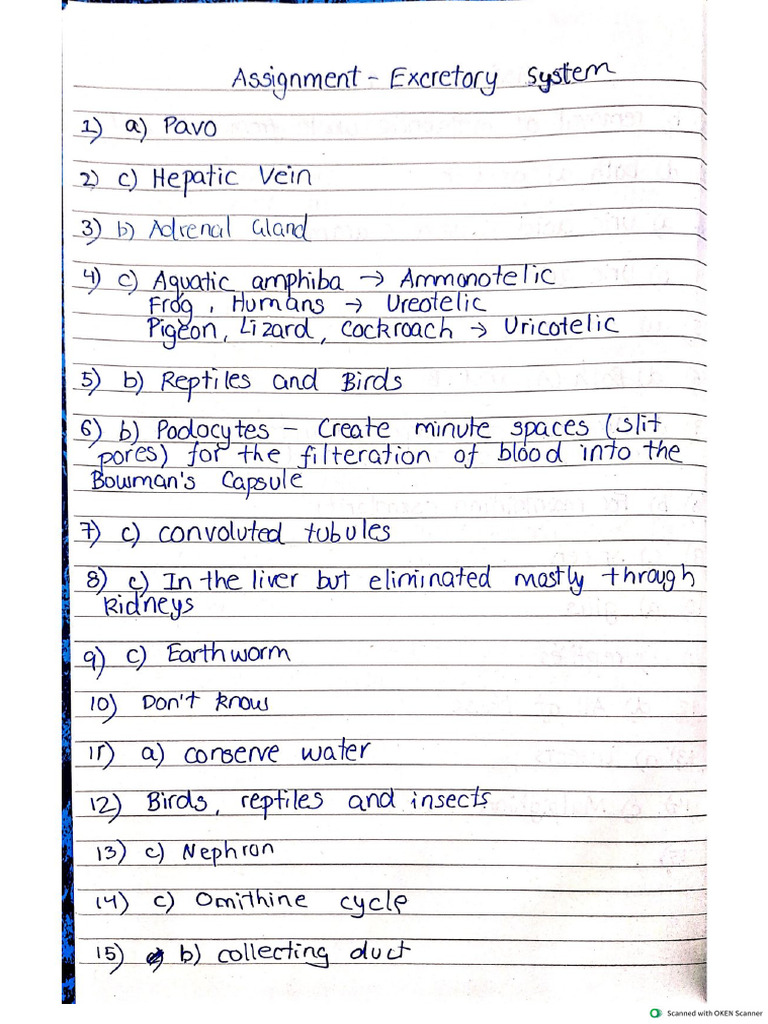 Assignment - Excretory System
1) a) Pavo
2) c) Hepatic Vein
3) b) Adrenal Gland
4) c) Aquatic amphiba → Ammonotelic
Frog, Humans → Ureotelic
Pigeon, Lizard, Cockroach → Uricotelic
5) b) Reptiles and Birds
6) b) Podocytes - Create minute spaces (slit
pores) for the filteration of blood into the
Bowman's Capsule
7) c) convoluted tubules
8) c) In the liver but eliminated mostly through
kidneys
9) c) Earthworm
10) Don't know
11) a) conserve water
12) Birds, reptiles and insects
13) c) Nephron
14) c) Ornithine cycle
15) b) collecting duct
Scanned with OKEN Scanner